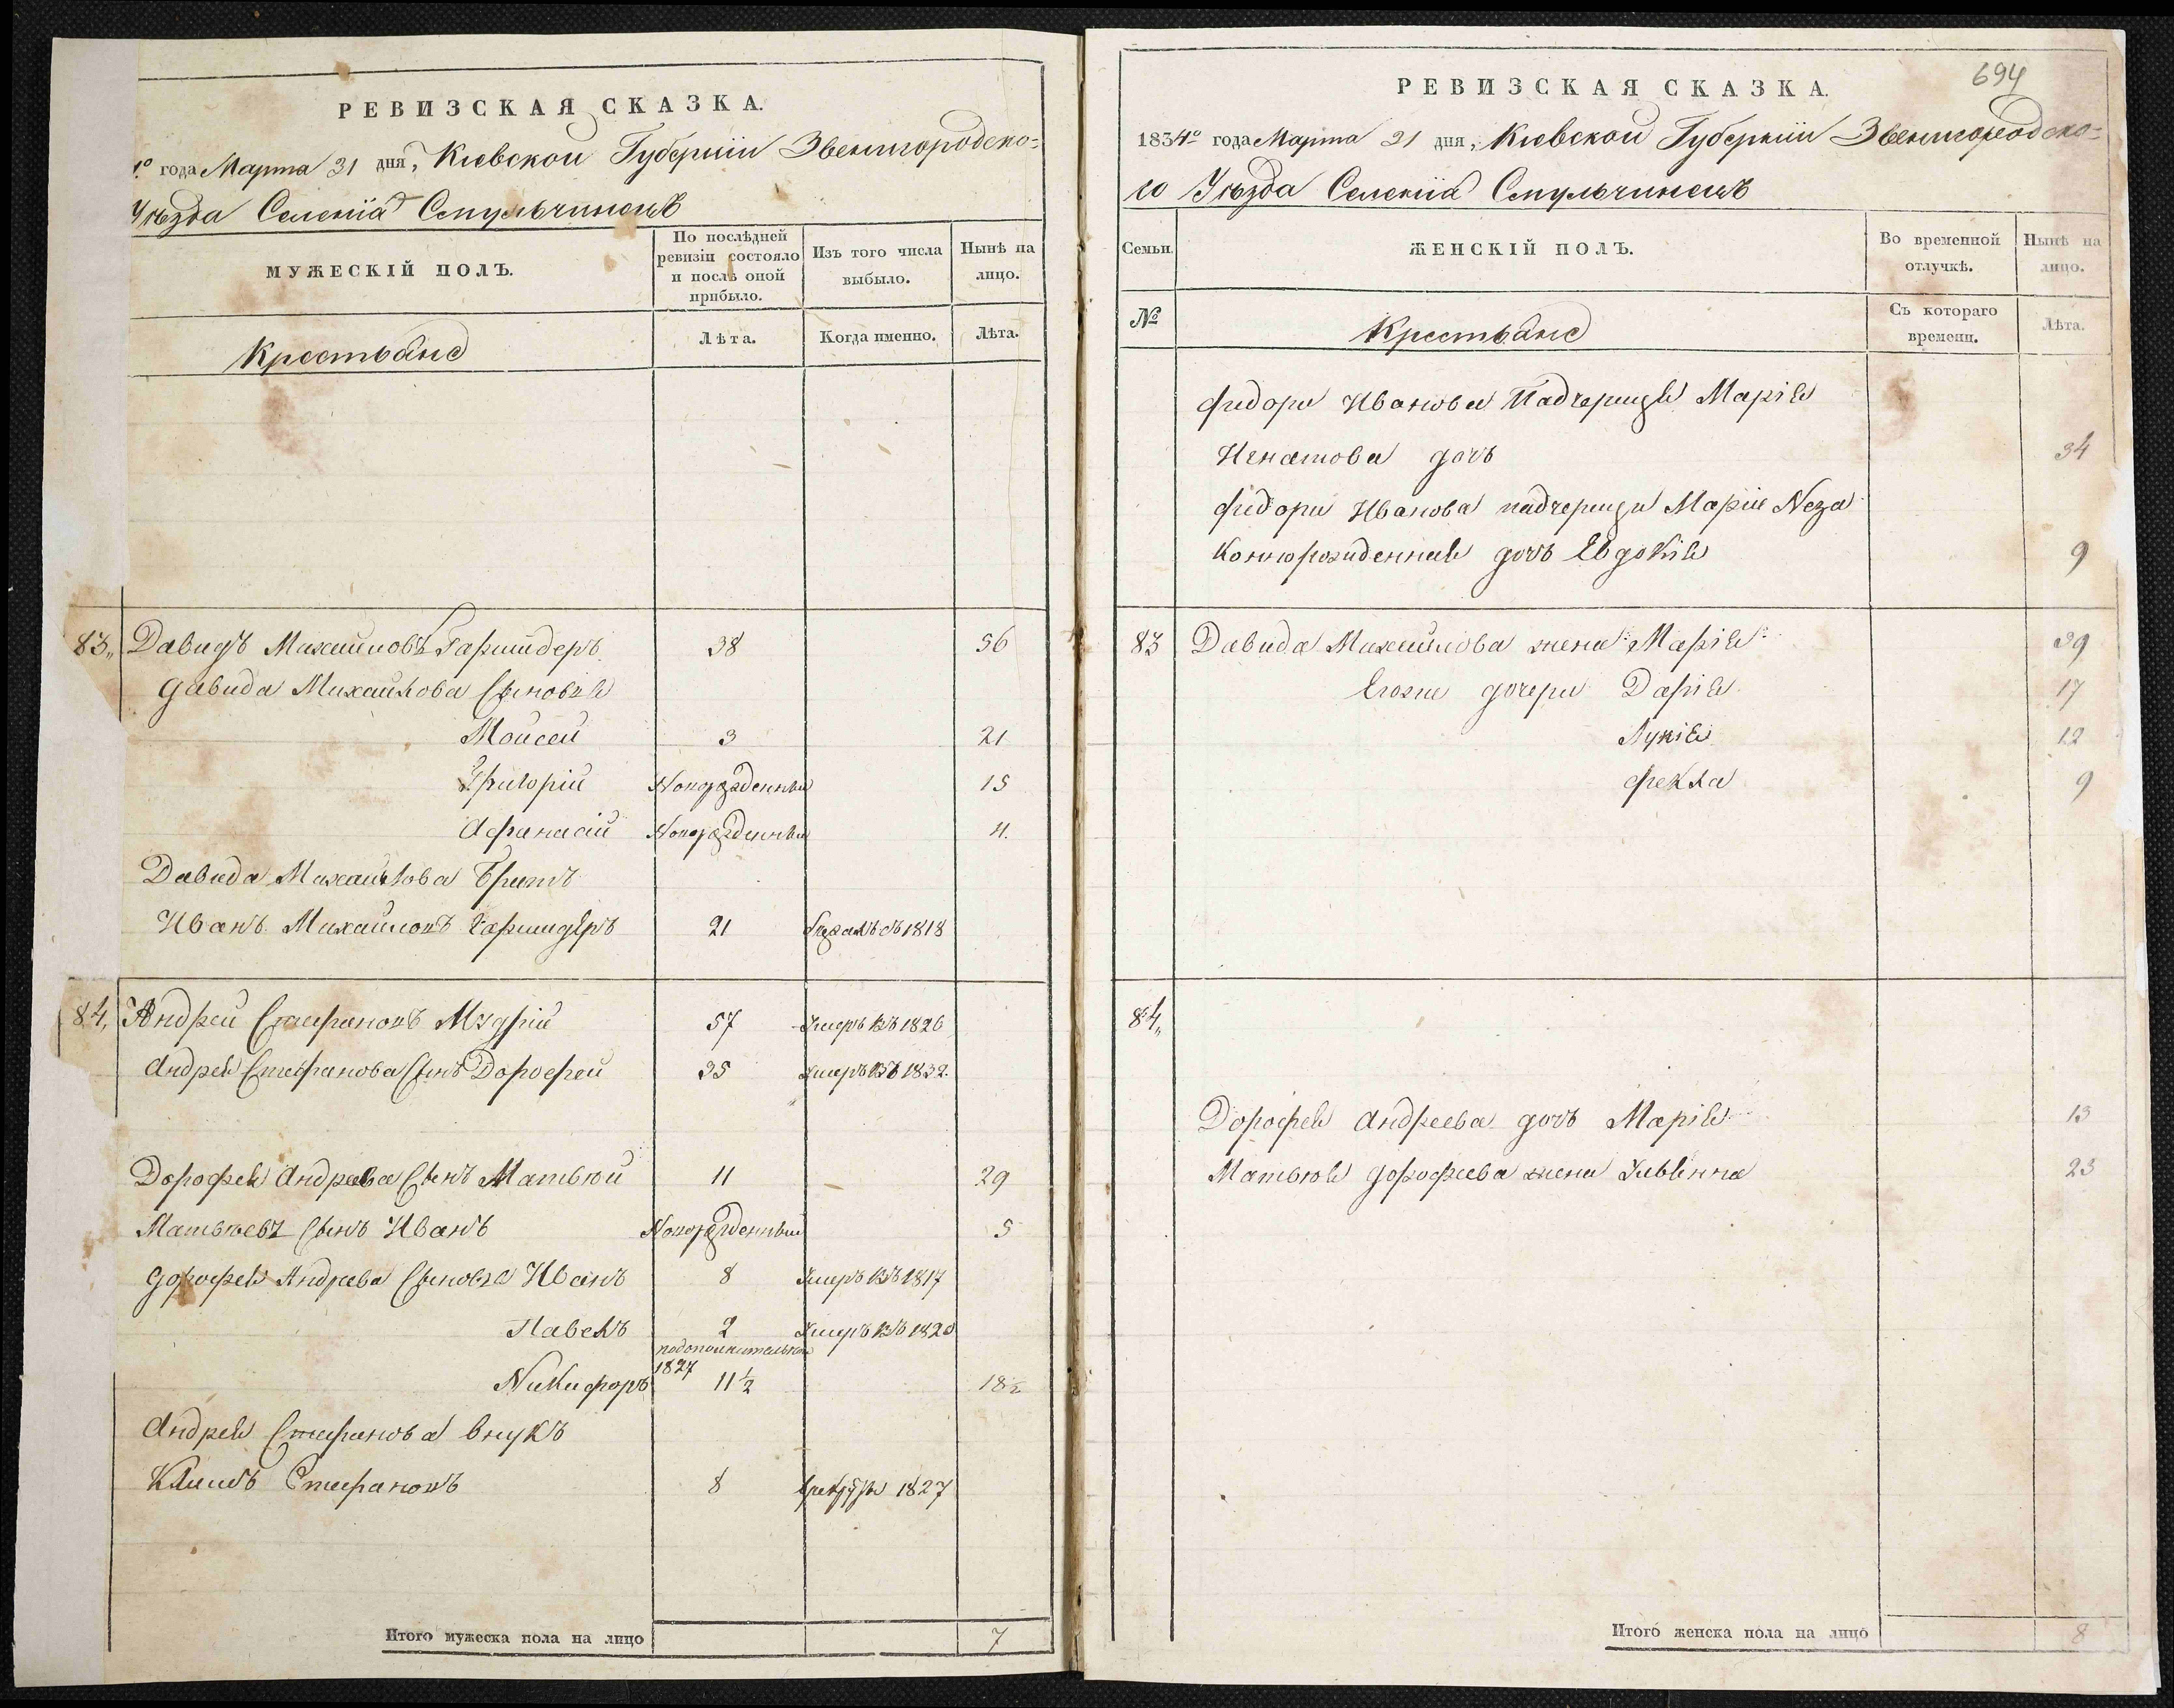 РЕВИЗСКАЯ СКАЗКА.
года Марта 31 дня, Киевской Губерніи Звенигородско=
Уѣзда Селенія
МУЖЕСКІЙ ПОЛЪ.
По послѣдней ревизіи состояло и послѣ оной прибыло.
Изъ того числа выбыло.
Нынѣ на лицо.
Крестьяне
Лѣта.
Когда именно.
Лѣта.
83, Давидъ Михайловъ 38 56
Давида Михайлова Сыновья
Мойсей 3 21
Григорій Новорожденный 15
Афанасій Новорожденный 11.
Давида Михайлова Братъ
Иванъ Михайловъ 21 1818
84, Андрей Стефановъ Мудрій 57 Умеръ въ 1826
Андрея Стефанова Сынъ Дорофей 35 Умеръ въ 1832.
Дорофея Андреева Сынъ Матвюй 11 29
Матвюевъ Сынъ Иванъ Новорожденный 5
Дорофея Андреева Сыновья Иванъ 8 Умеръ въ 1817
Павелъ 2 Умеръ въ 1820
подополнительной
1827
Никифоръ 11½ 18½
Андрея Стефанова Внукъ
Климъ Стефановъ 8 1827
Итого мужеска пола на лицо 7
694
РЕВИЗСКАЯ СКАЗКА.
1834го года Марта 31 дня, Киевской Губерніи Звенигородско=
го Уѣзда Селенія
Семьи.
ЖЕНСКІЙ ПОЛЪ.
Во временной отлучкѣ.
Нынѣ на лицо.
№
Крестьяне
Съ котораго времени.
Лѣта.
Фидора Иванова Падчерица Марія
Игнатова дочь 34
Фидора Иванова падчерицы Маріи Неза
коннорожденная дочь Евдокія 9
83 Давида Михайлова жена Марія 39
Егоже дочери Дарія 17
Лукія 12
Фекла 9
84,
Дорофея Андреева дочь Марія 13
Матвюя Дорофеева жена Ульянна 23
Итого женска пола на лицо 8